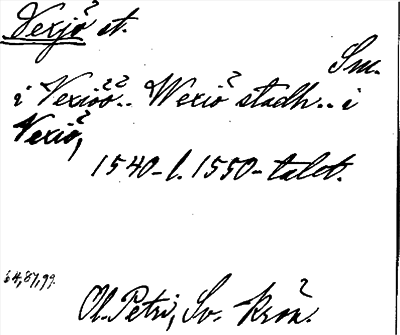 Vexjö st.
Sm.
i Vexioö.. Wexio stadh.. i
Vexio,
1540- l. 1550-talet.
64,87,99.
Ol. Petri, Sv. krön.